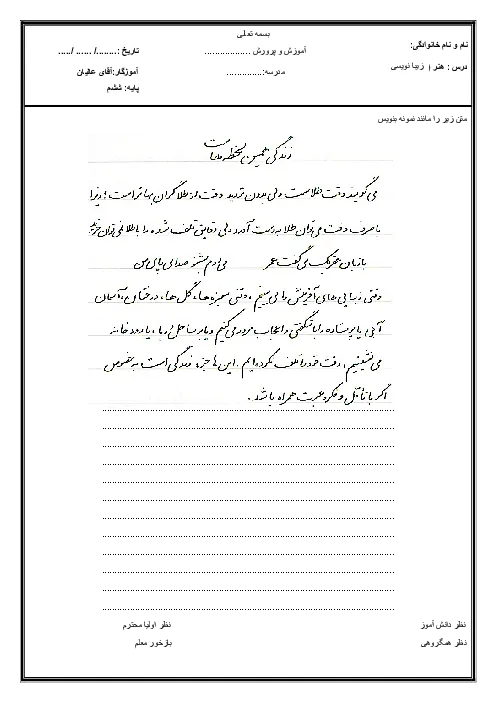 بسمه تعالی
نام و نام خانوادگی:
آموزش و پرورش ..................
تاریخ :......../ ...... /.....
درس : هنر ( زیبا نویسی
مدرسه:..............
آموزگار:آقای عالیان
پایه: ششم
متن زیر را مانند نمونه بنویس
زندگی همین لحظه هاست
می گویند وقت طلاست ولی بدون تردید وقت از طلا گران بها تر است ؛ زیرا
با صرف وقت می توان طلا به دست آورد ولی دقایق تلف شده را با طلا نمی توان خرید
با زبان عقربک می گفت عمر می روم بشنو صدای پای من
وقتی زیبایی های آفرینش را می بینیم ، وقتی سبزه ها، گل ها، درختان، آسمان
آبی یا پرستاره را با شگفتی و اعجاب مرور می کنیم و یا بر ساحل دریا، یا رودخانه
می نشینیم ، وقت خود را تلف نکرده ایم . این ها جزء زندگی است به خصوص
اگر با تأمل و فکر و عبرت همراه باشد .
نظر دانش آموز
نظر اولیا محترم
نظر همگروهی
بازخور معلم